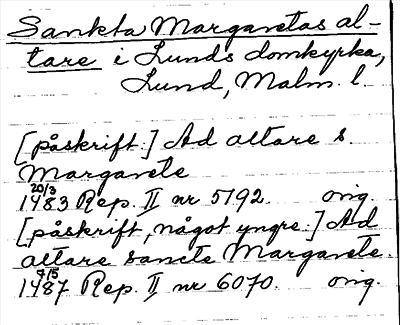 Sankta Margaretas al-
tare i Lunds domkyrka,
Lund, Malm. l.
[påskrift:] Ad altare s.
Margarete
20/3
1483 Rep. II nr 5192. orig.
[påskrift, något yngre:] Ad
altare sancte Margarete.
7/5
1487 Rep. II nr 6070. orig.